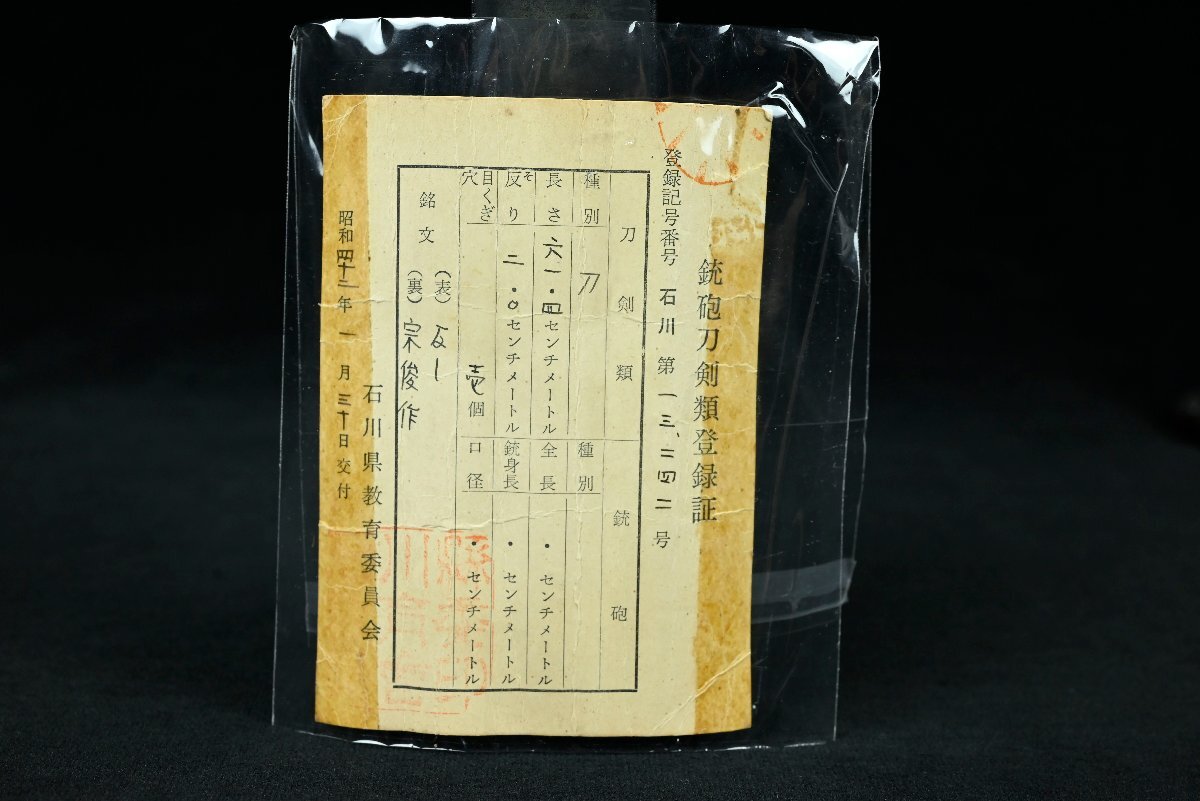 銃砲刀剣類登録証
登録記号番号 石川 第 一三、二四二 号
刀剣類
種別 刀
長さ 六一・四センチメートル
反り 二・〇センチメートル
そ
目くぎ穴 壱個
銘文
(表)
(裏) 宗俊作
銃砲
種別
全長 ・ センチメートル
銃身長 ・ センチメートル
口径 ・ センチメートル
昭和四十二年 一月三十日交付
石川県教育委員会